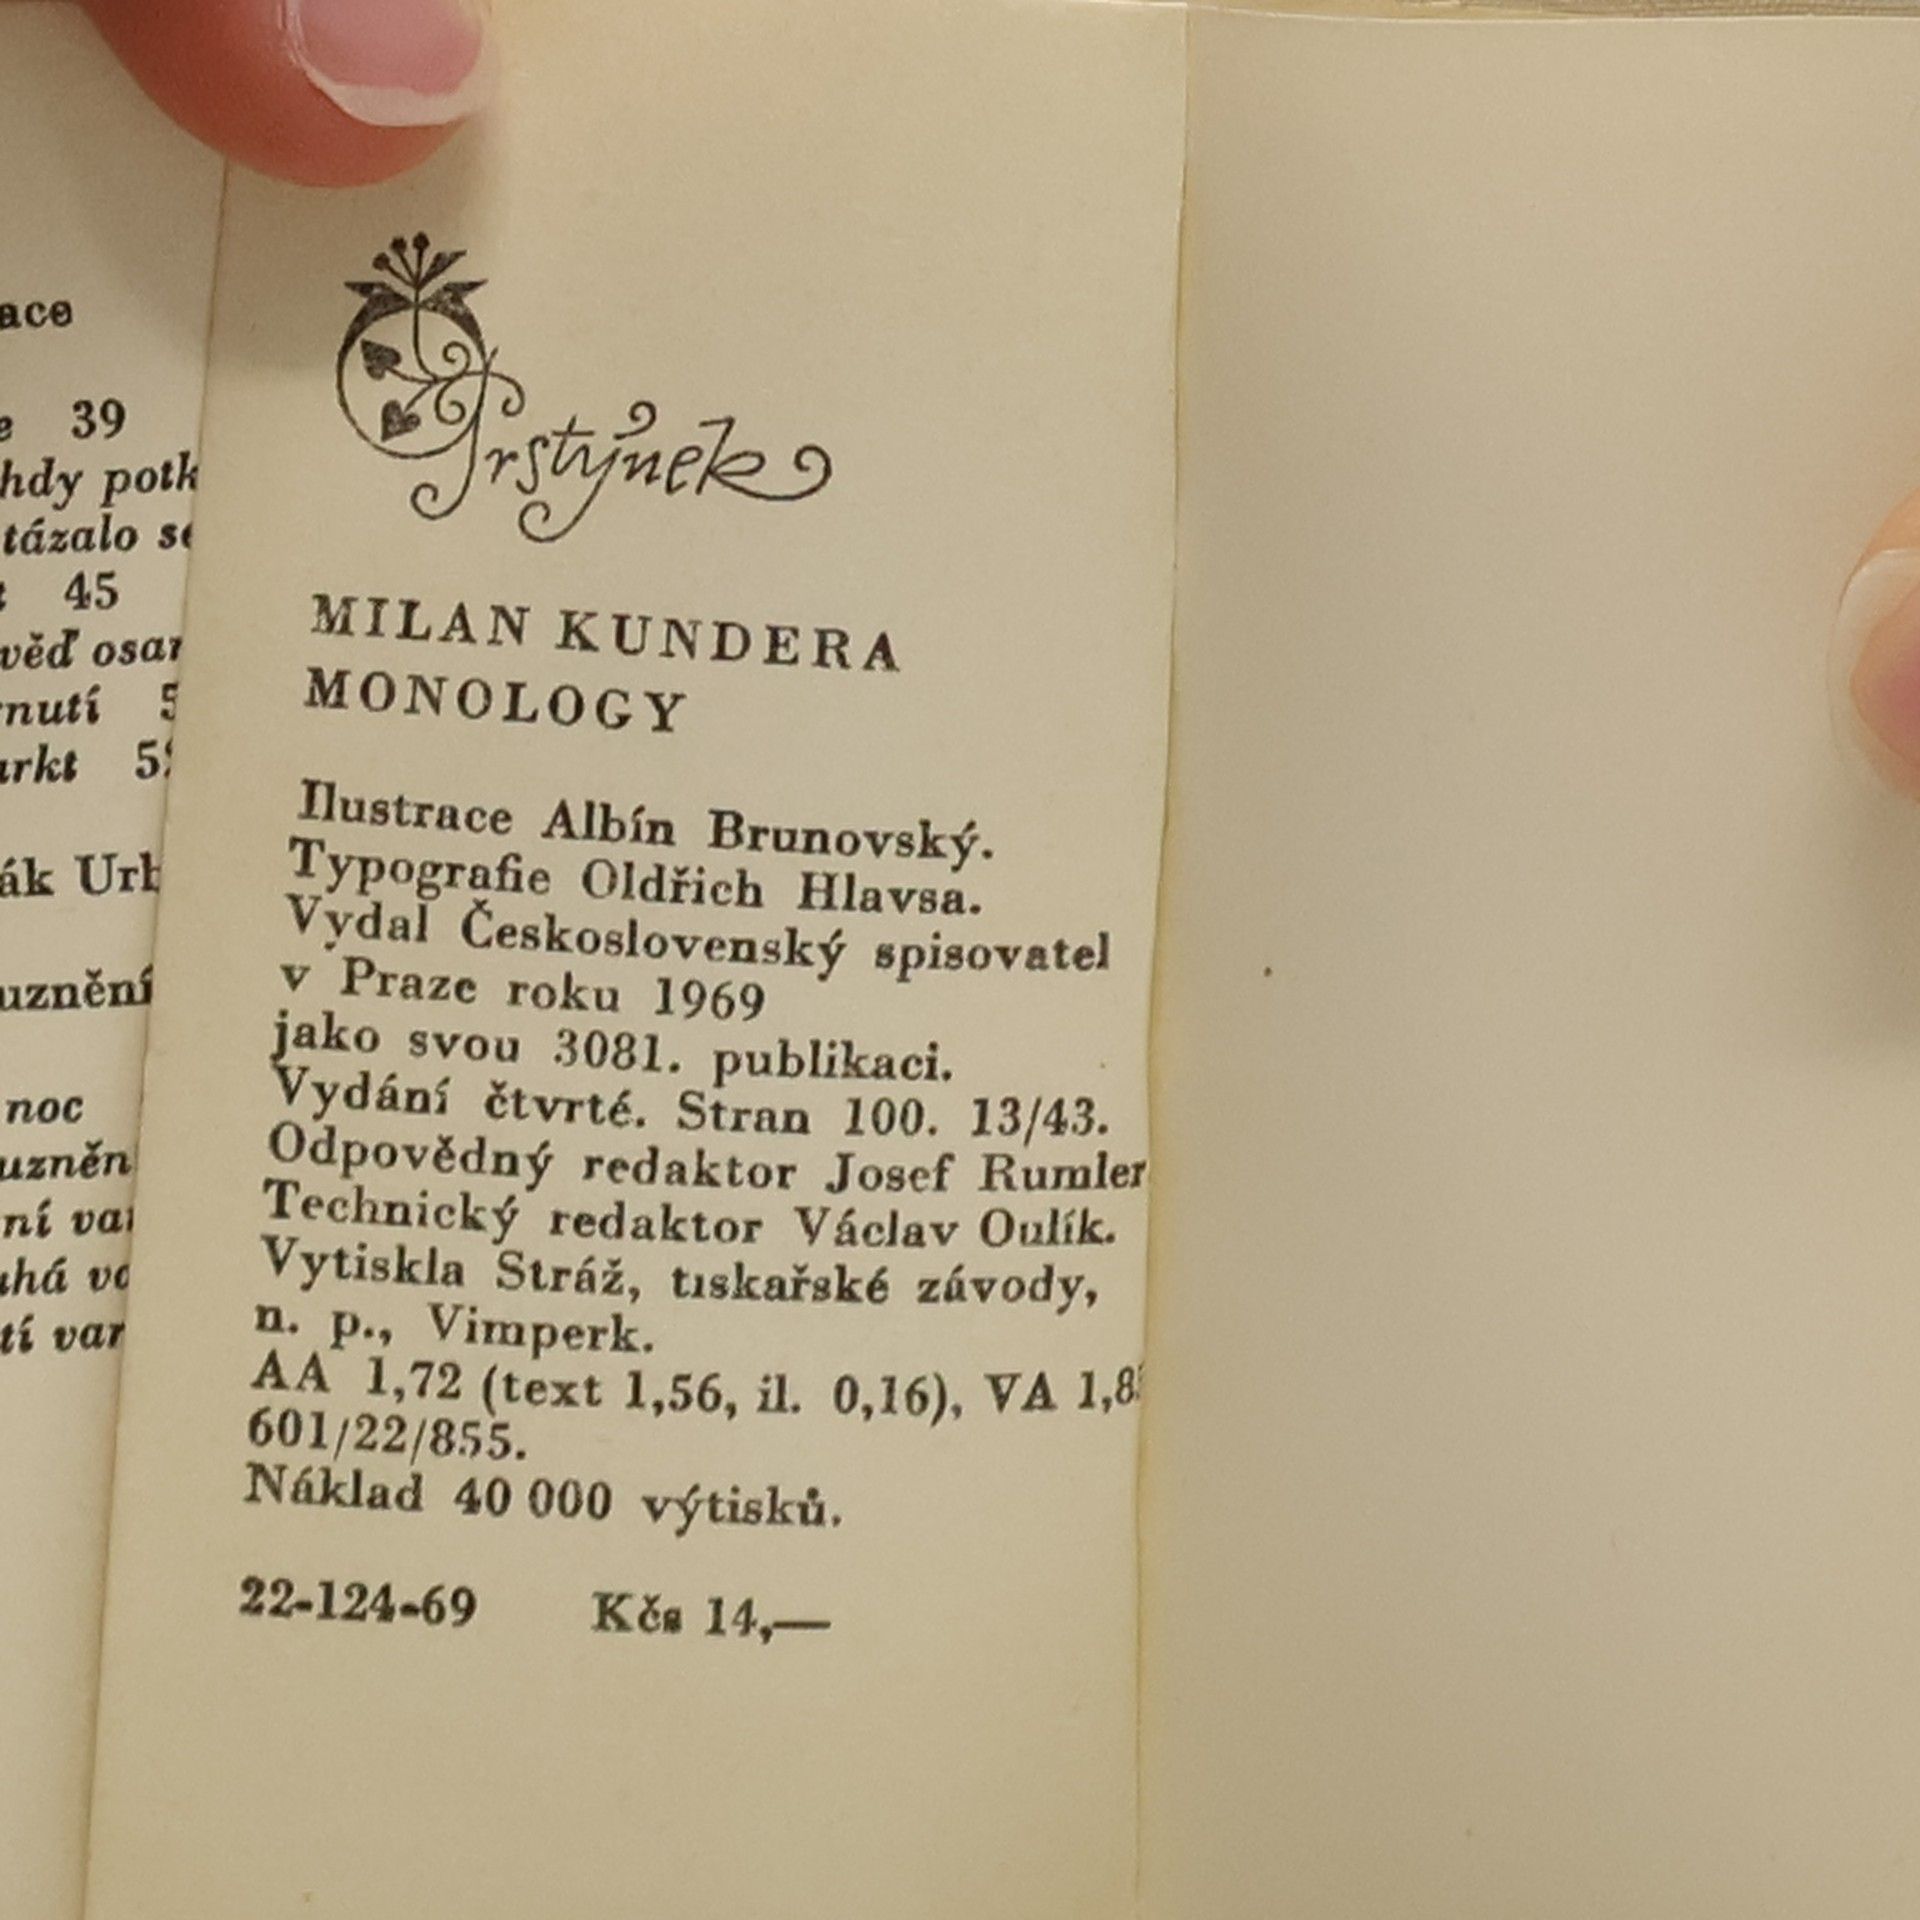 ace
39
hdy potk
tázalo se
45
věď osar
nutí 5
arkt 5
ák Urb
uznění
noc
uzněn
ní var
uhá va
tí var
Prstýnek
MILAN KUNDERA
MONOLOGY
Ilustrace Albín Brunovský.
Typografie Oldřich Hlavsa.
Vydal Československý spisovatel
v Praze roku 1969
jako svou 3081. publikaci.
Vydání čtvrté. Stran 100. 13/43.
Odpovědný redaktor Josef Rumler
Technický redaktor Václav Oulík.
Vytiskla Stráž, tiskařské závody,
n. p., Vimperk.
AA 1,72 (text 1,56, il. 0,16), VA 1,8
601/22/855.
Náklad 40 000 výtisků.
22-124-69 Kčs 14,—